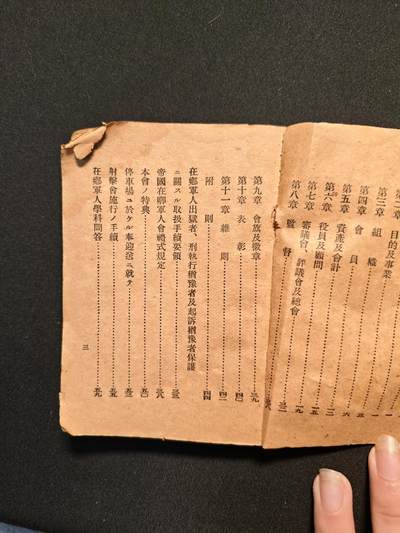 二章 目的及事業
第三章 組織
第四章 會員……六
第五章 資產及會計……一二
第六章 役員及顧問……一五
第七章 審議會、評議會及總會……一九
第八章 監督
第九章 會旗及徽章
第十章 表彰
第十一章 雜則……四二
附則……四四
在鄉軍人出獄者、刑執行猶豫者及起訴猶豫者保護
ニ關スル取扱手續要領
帝國在鄉軍人會禮式規定
本會ノ特典
停車場ニ於ケル奉迎送ニ就テ
射擊會施行ノ手續
在鄉軍人學科問答
三